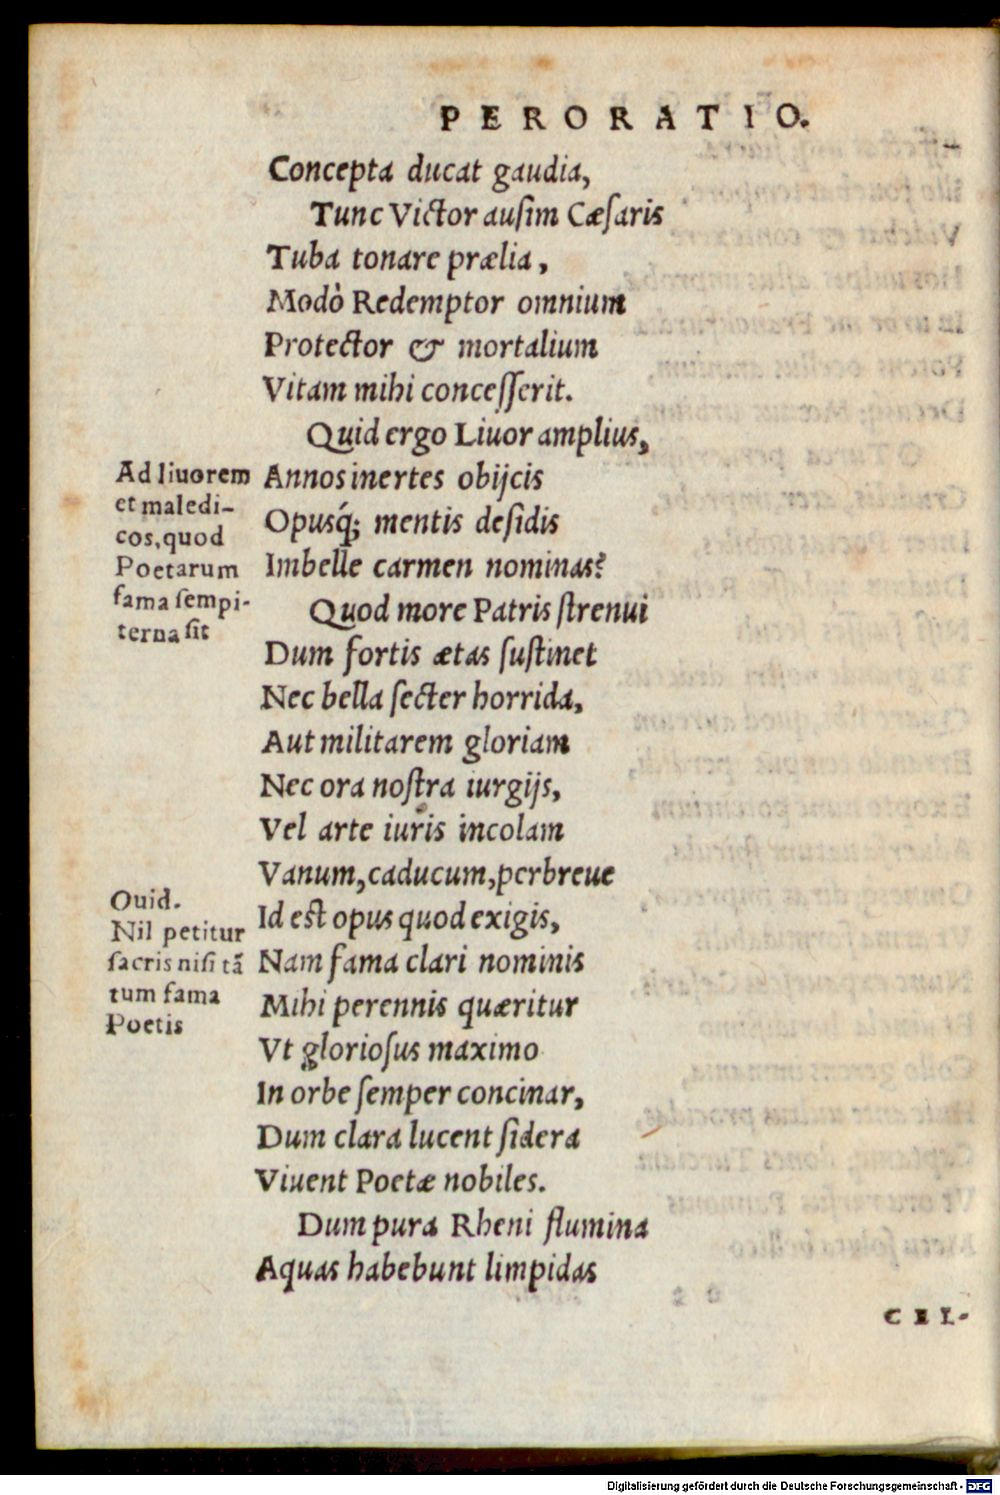 PERORATIO.
Concepta ducat gaudia,
Tunc Victor ausim Cæsaris
Tuba tonare prælia,
Modò Redemptor omnium
Protector & mortalium
Vitam mihi concesserit.
Quid ergo Liuor amplius,
Annos inertes obijcis
Opusq́; mentis desidis
Imbelle carmen nominas?
Quod more Patris strenui
Dum fortis ætas sustinet
Nec bella secter horrida,
Aut militarem gloriam
Nec ora nostra iurgijs,
Vel arte iuris incolam
Vanum, caducum, perbreue
Id est opus quod exigis,
Nam fama clari nominis
Mihi perennis quæritur
Vt gloriosus maximo
In orbe semper concinar,
Dum clara lucent sidera
Viuent Poetæ nobiles.
Dum pura Rheni flumina
Aquas habebunt limpidas
CEL-
Ad liuorem
et maledi-
cos, quod
Poetarum
fama sempi-
terna sit
Ouid.
Nil petitur
sacris nisi tã
tum fama
Poetis
Digitalisierung gefördert durch die Deutsche Forschungsgemeinschaft - DFG